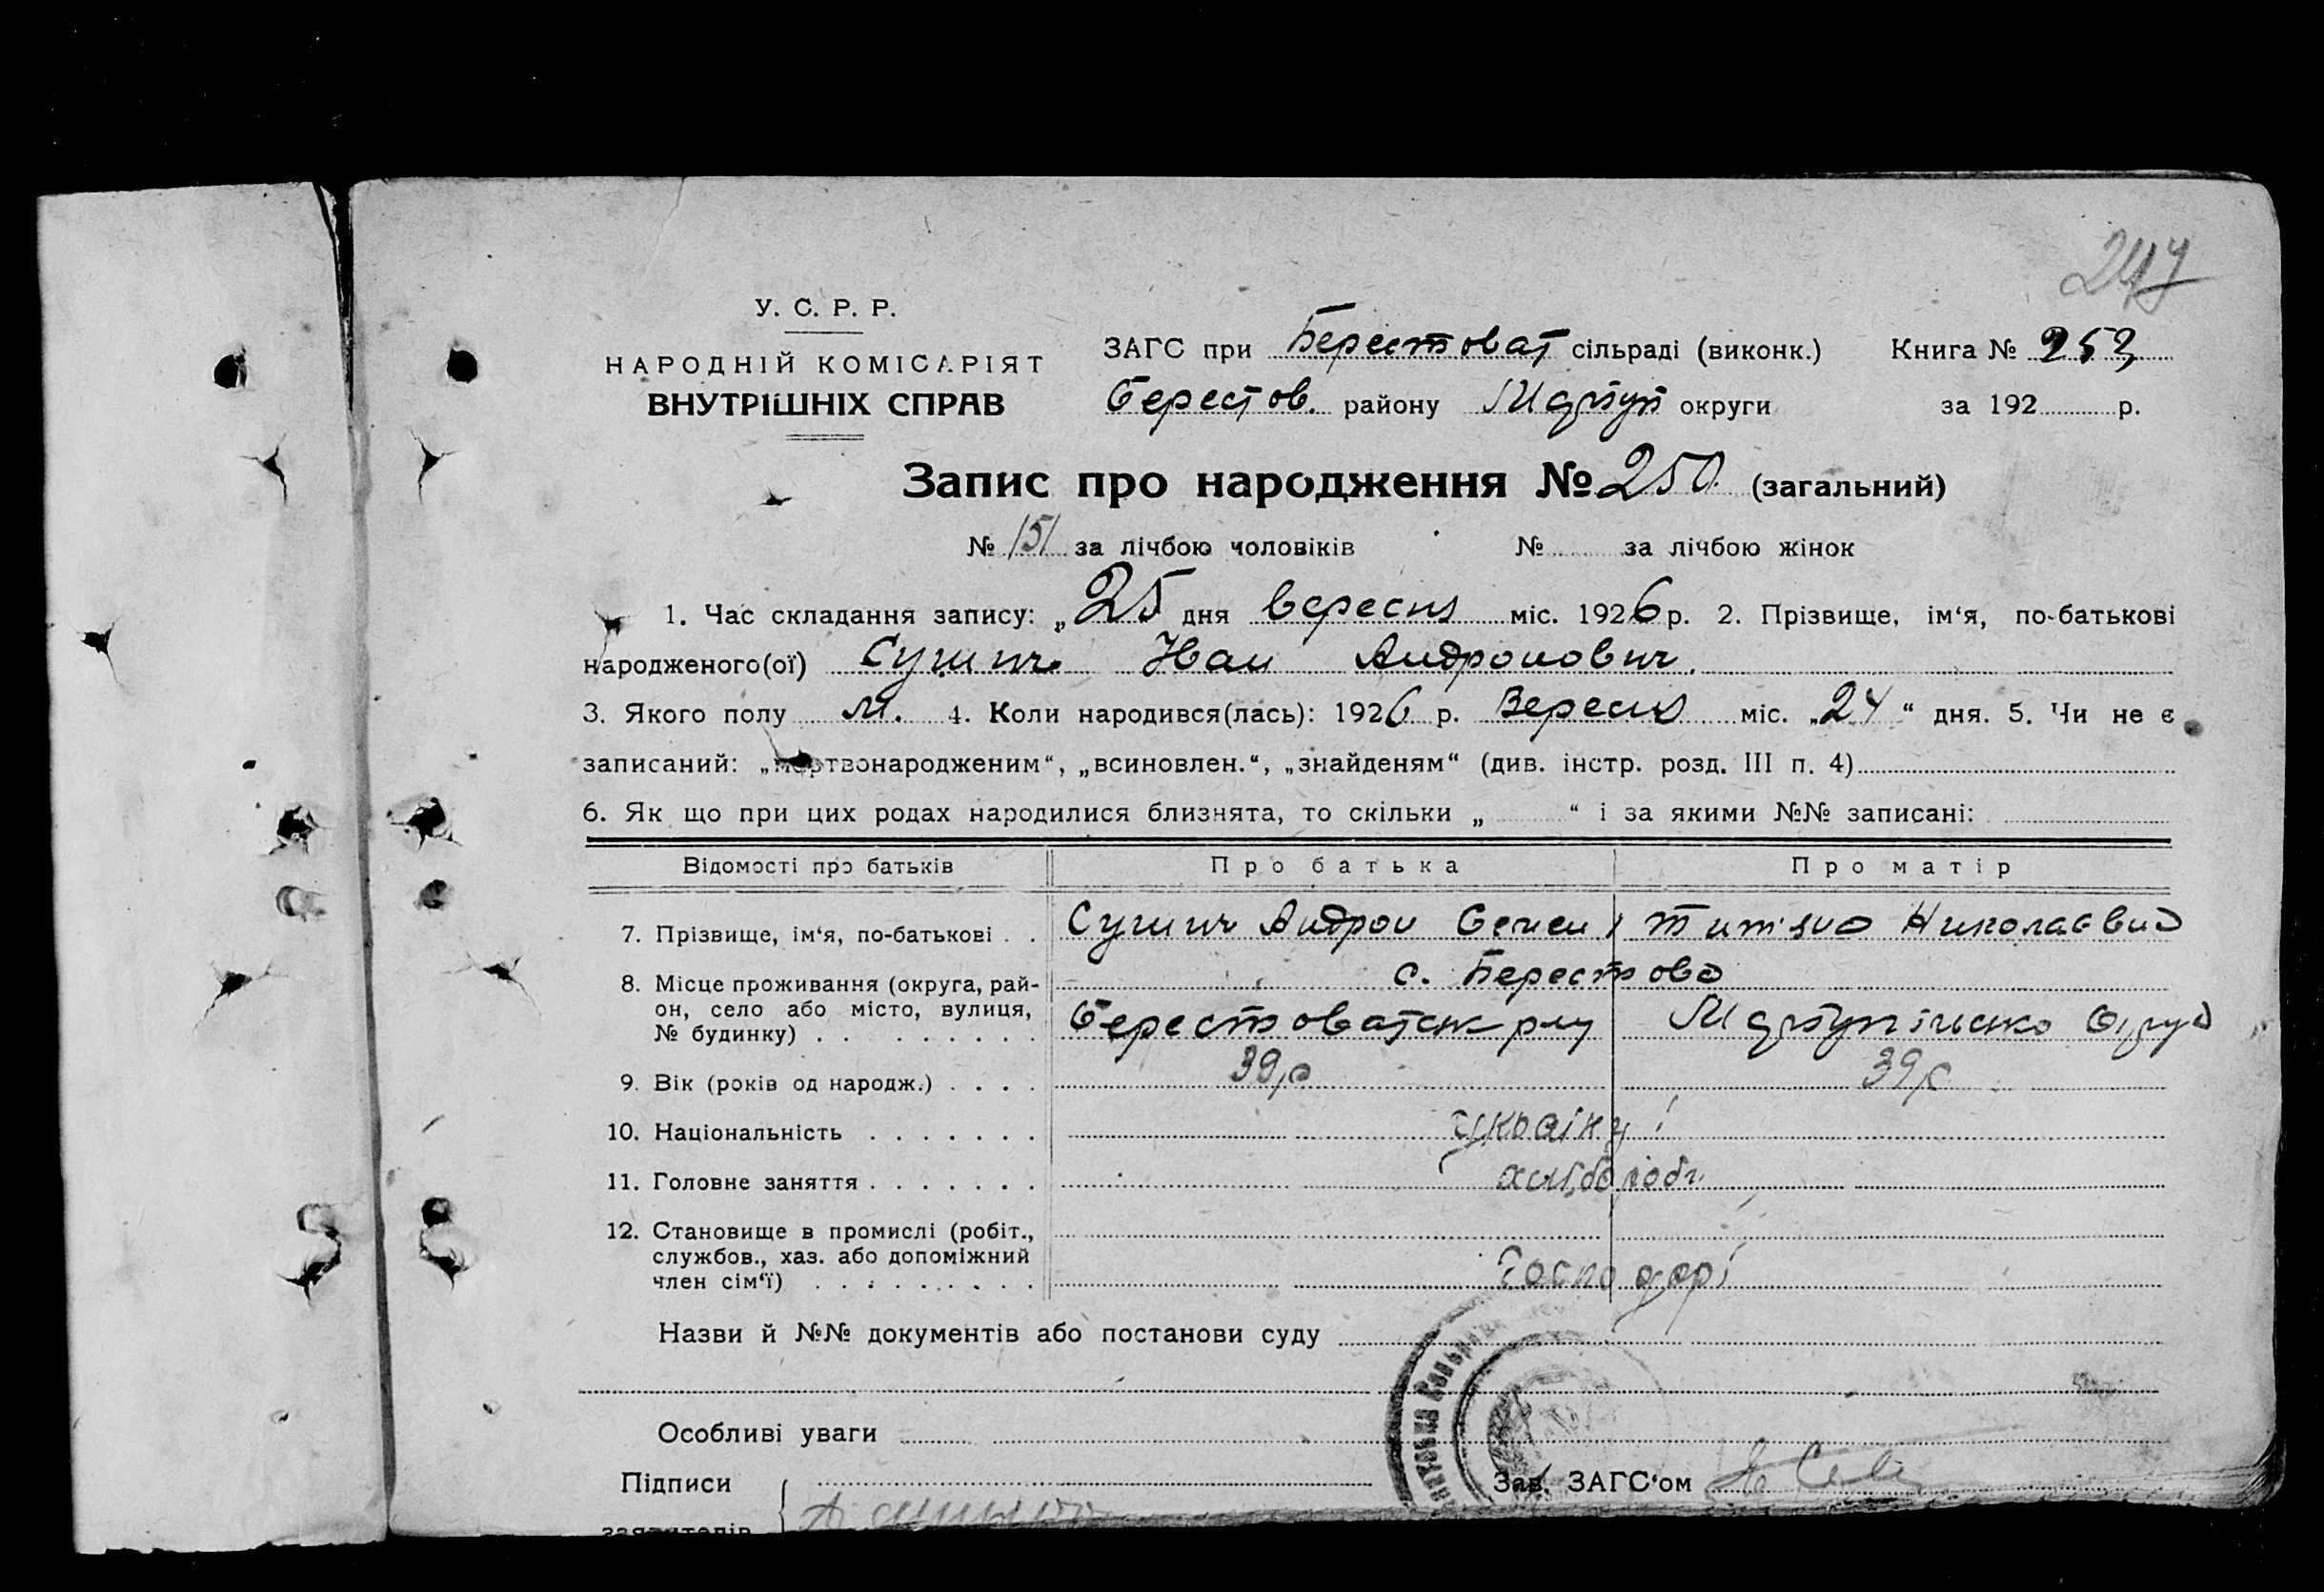 247
У. С. Р. Р.
НАРОДНІЙ КОМІСАРІЯТ
ВНУТРІШНІХ СПРАВ
ЗАГС при Берестоват сільраді (виконк.) Книга № 253
Берестов. району Маріуп округи за 192 р.
Запис про народження № 250 (загальний)
№ 151 за лічбою чоловіків № за лічбою жінок
1. Час складання запису: „ 25 дня вересня міс. 1926 р. 2. Прізвище, ім‘я, по-батькові
народженого(ої) Иван Андронович.
3. Якого полу м. 4. Коли народився(лась): 1926 р. Вересня міс. „24“ дня. 5. Чи не є
записаний: „мертвонародженим“, „всиновлен.“, „знайденям“ (див. інстр. розд. III п. 4)
6. Як що при цих родах народилися близнята, то скільки „ “ і за якими №№ записані:
Відомості про батьків Про батька Про матір
7. Прізвище, ім‘я, по-батькові . . Андрон Семен Николаевна
8. Місце проживання (округа, рай-
он, село або місто, вулиця,
№ будинку) . . . . . . . . .
с. Берестова
Берестоватськ Округа
9. Вік (років од народж.) . . . . 39 р 39 р
10. Національність . . . . . . . україн
11. Головне заняття . . . . . . . хлібороб
12. Становище в промислі (робіт.,
службов., хаз. або допоміжний
член сім‘ї) . . . . . . . . . Господарі
Назви й №№ документів або постанови суду
Особливі уваги
Підписи Зав. ЗАГС‘ом
заявителів